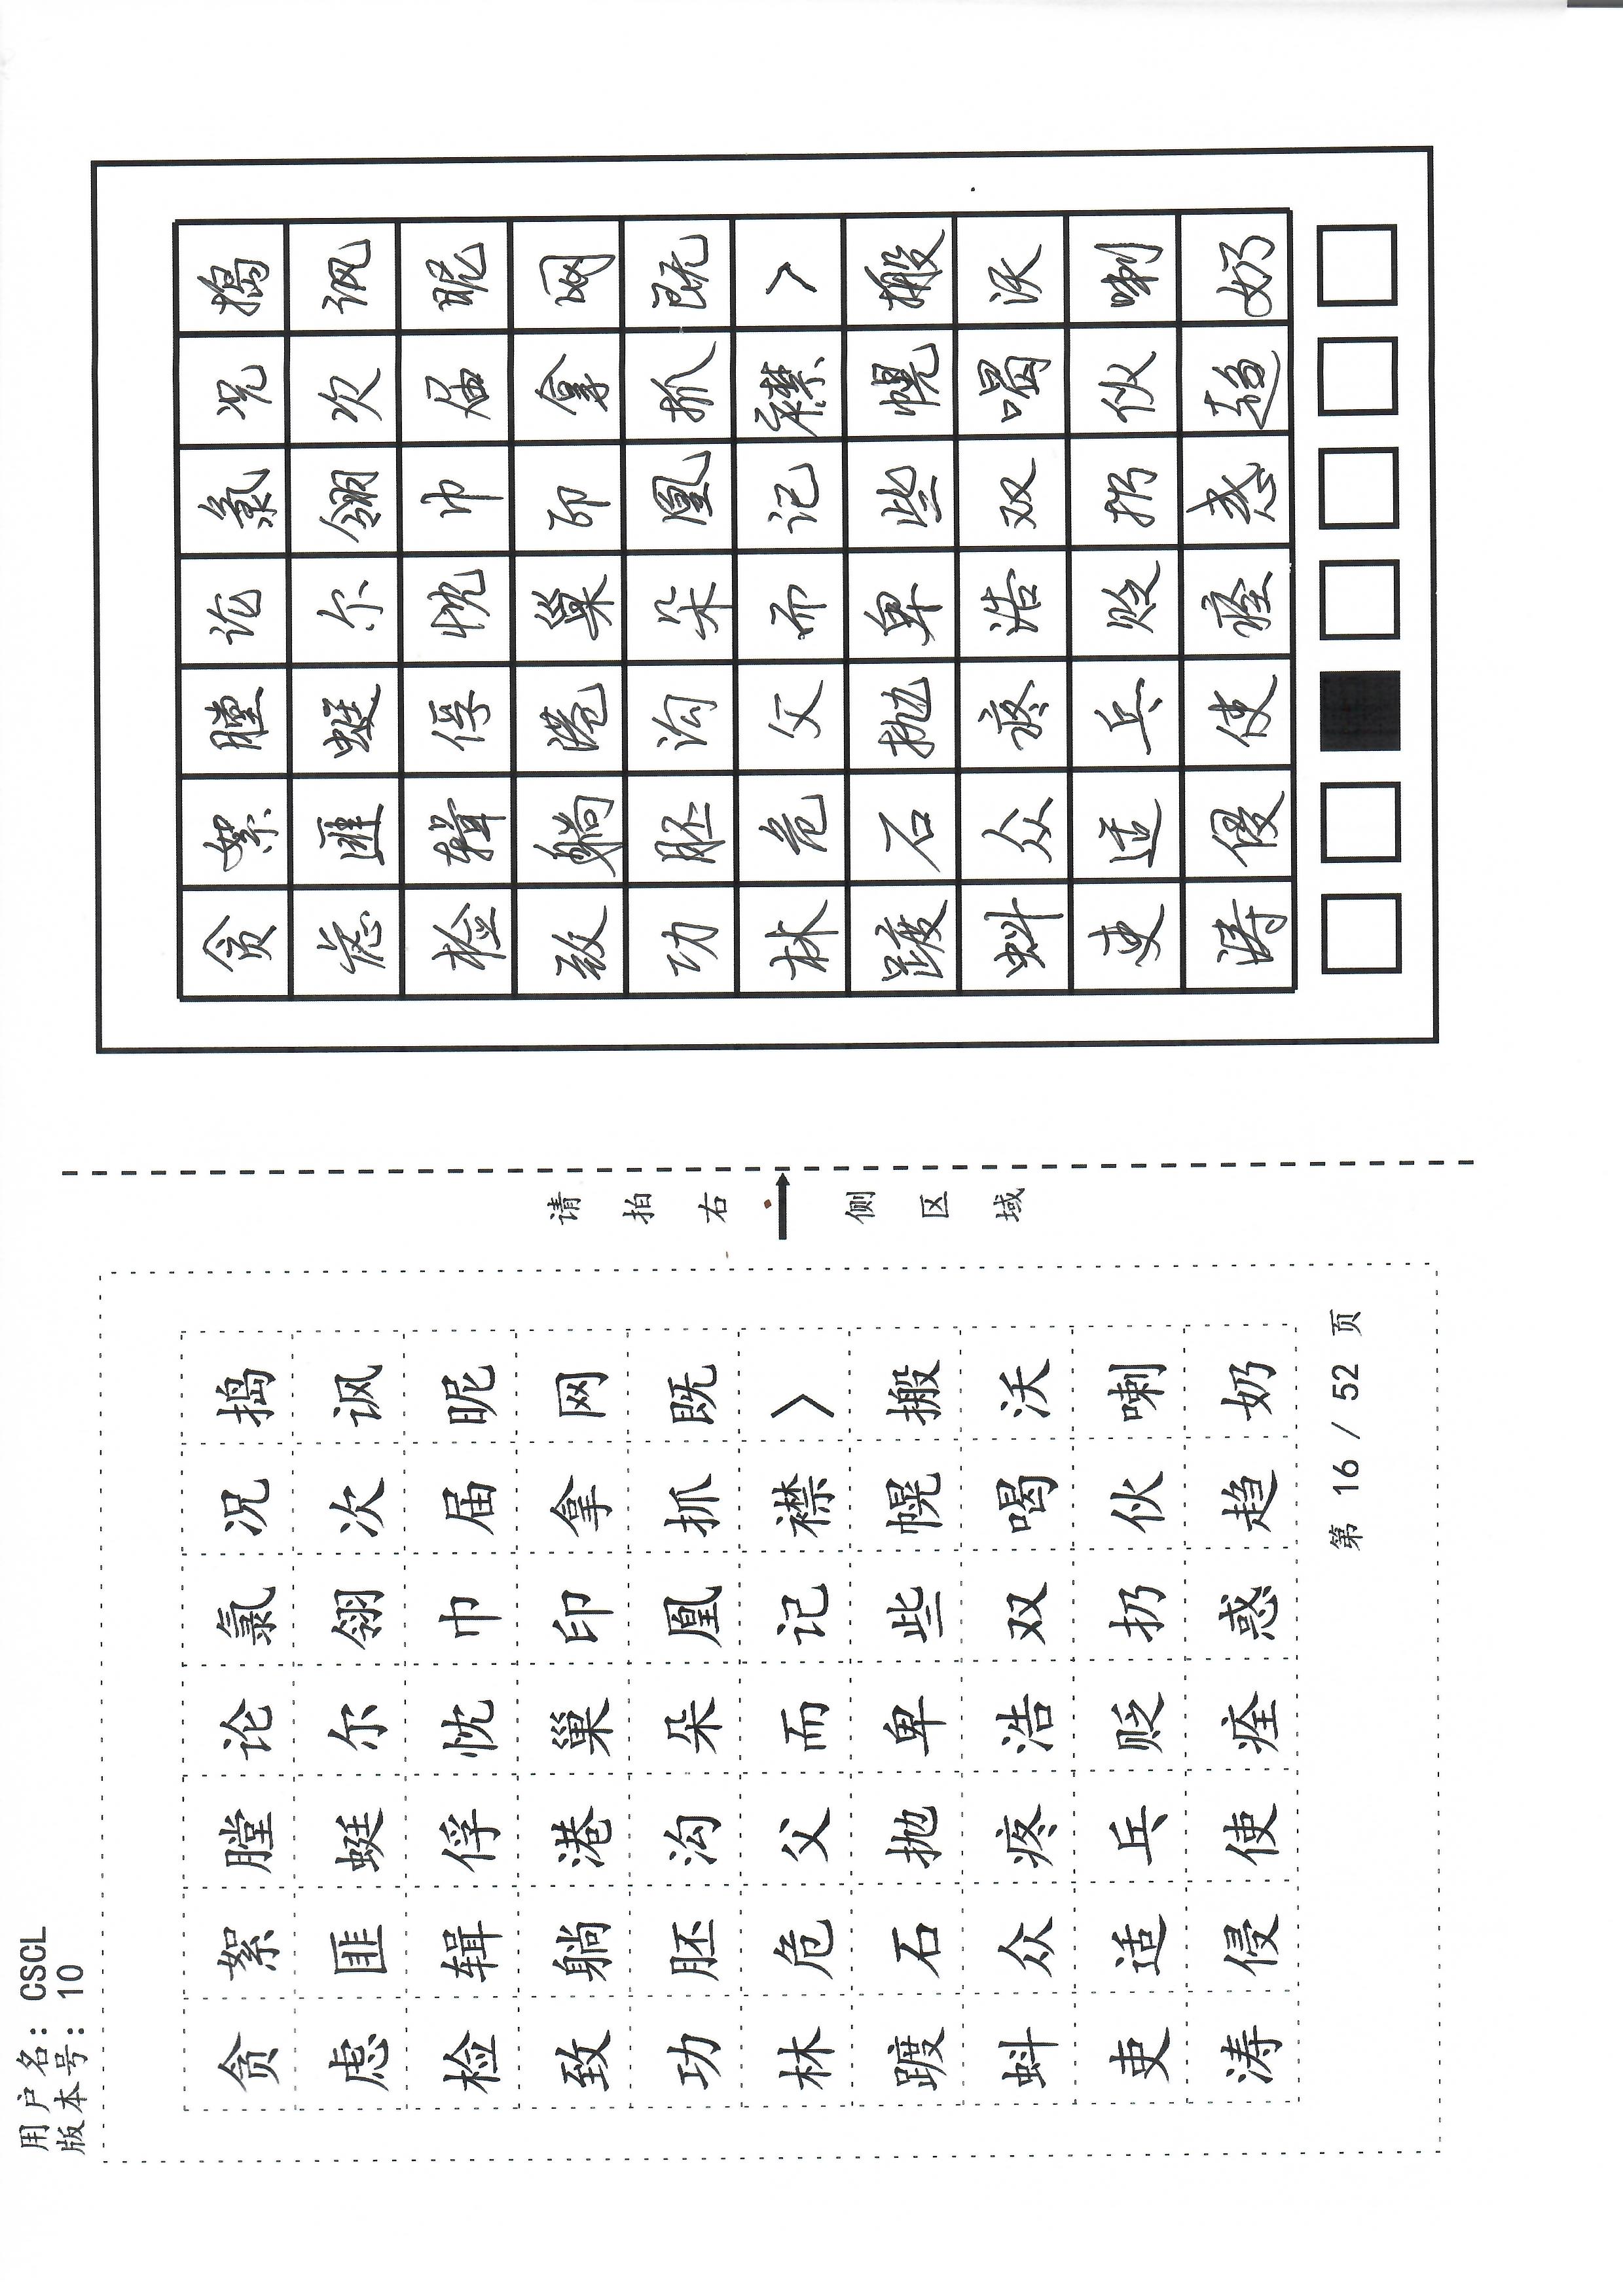 用户名: CSCL
版本号: 10
贪絮膛论氯况捣
虑匪蜓尔翎次讽
检辑俘忱巾届昵
致躺港巢印拿网
功胚沟朵凰抓既
林危父而记襟>
踱石抛卑些幌搬
蚪众疼浩双喝沃
吏适兵贬扔伙喇
涛侵使痊惑趋奶
第 16 / 52 页
请拍右→侧区域
贪絮膛论氯况捣
虑匪蜓尔翎次讽
检辑俘忱巾届昵
致躺港巢印拿网
功胚沟朵凰抓既
林危父而记襟>
踱石抛卑些幌搬
蚪众疼浩双喝沃
吏适兵贬扔伙喇
涛侵使痊惑趋奶